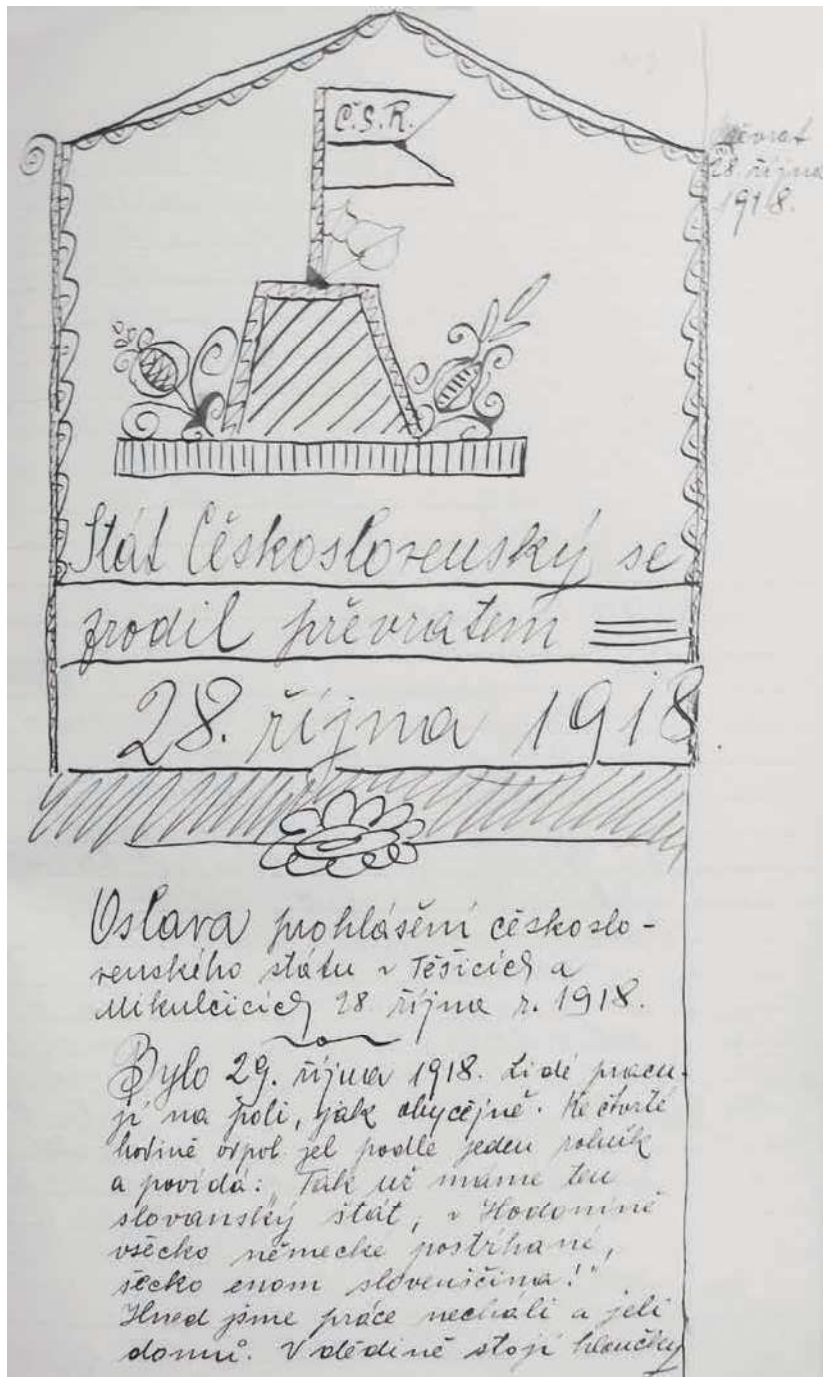 Č.S.R.
Převrat
28. října
1918.
Stát Československý se
zrodil převratem
28. října 1918
Oslava prohlášení českoslo-
venského státu v Těšicích a
Mikulčicích 28 října r. 1918.
Bylo 29. října 1918. Lidé pracu-
jí na poli, jak obyčejně. Ke čtvrté
hodině odpol. jel podle jeden rolník
a povídá: "Tak už máme ten
slovanský štát, v Hodoníně
všecko německé postrhané,
šecko enom slovenščina!"
Hned jsme práce nechali a jeli
domů. V dědině stojí hloučky